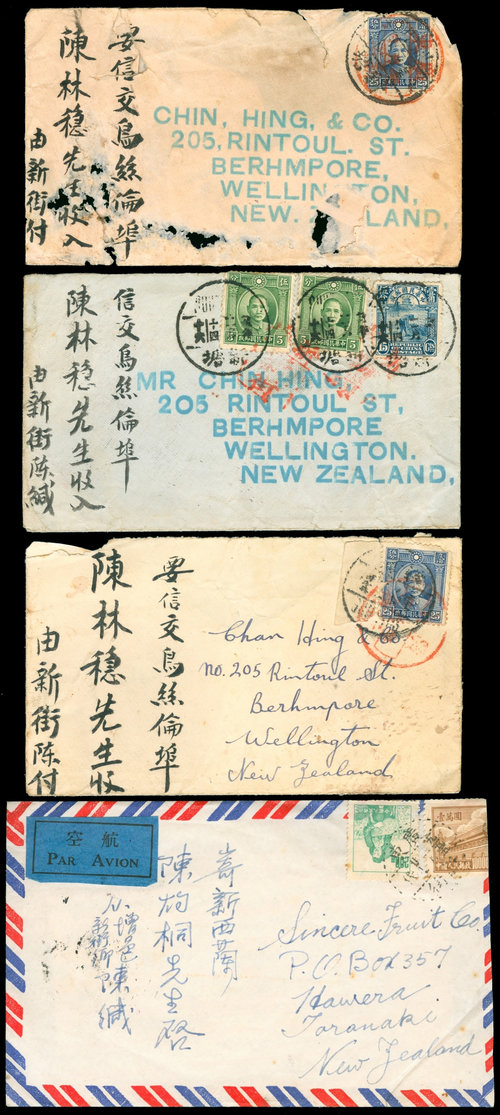 安信交烏絲倫埠
陳林穩先生收入
由新街付
25
CHIN, HING, & CO.
205, RINTOUL. ST.
BERHMPORE,
WELLINGTON,
NEW. LAND,
信交烏絲倫埠
陳林穩先生收入
由新街陈緘
5
5
5
5
15
15
REPUBLIC
OF CHINA
POSTAGE
MR CHIN HING,
205 RINTOUL ST,
BERHMPORE
WELLINGTON.
NEW ZEALAND,
要信交烏絲倫埠
陳林穩先生收
由新街陈付
25
25
Chan Hing &
No. 205 Rintoul St.
Berhmpore
Wellington
New Zealand
空航
PAR AVION
壹萬圓
寄新西蘭
陳灼桐先生啓
增邑
陳緘
Sincere Fruit Co.
P.O. Box 357
Hawera
Taranaki
New Zealand